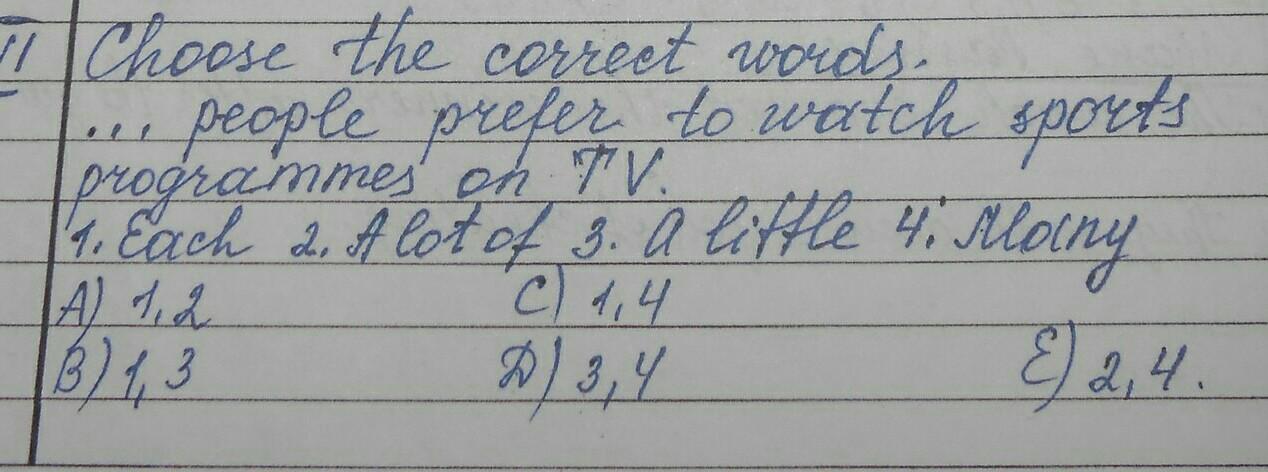 11 Choose the correct words.
... people prefer to watch sports
programmes on TV.
1. Each 2. A lot of 3. A little 4. Many
A) 1,2 C) 1,4
B) 1,3 D) 3,4 E) 2,4.